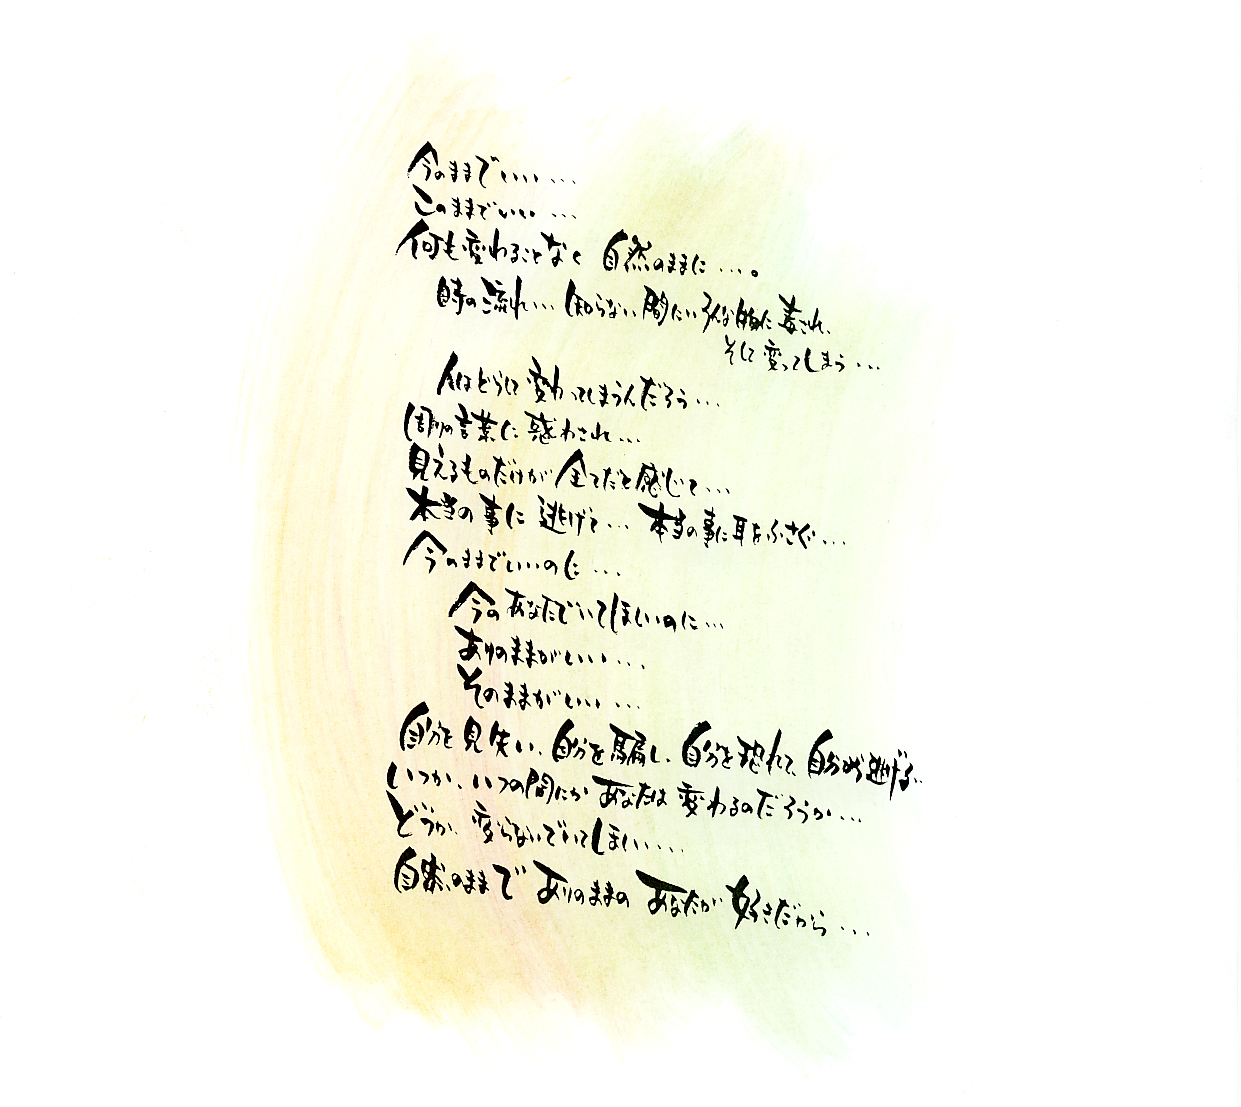 今のままでいい・・・
このままでいい・・・
何も変わることなく 自然のままに・・・。
時の流れ・・・知らない間にいろんな物に毒され、
そして変ってしまう・・・
人はどうして変わってしまうんだろう・・・
周りの言葉に惑わされ・・・
見えるものだけが全てだと感じて・・・
本当の事に逃げて・・・本当の事に耳をふさぐ・・・
今のままでいいのに・・・
今のあなたでいてほしいのに・・・
ありのままがいい・・・
そのままがいい・・・
自分を見失い、自分を騙し、自分を恐れて、自分から逃げる・・
いつか、いつの間にかあなたは変わるのだろうか・・・
どうか、変らないでいてほしい・・・・
自然のままで ありのままの あなたが 好きだから・・・